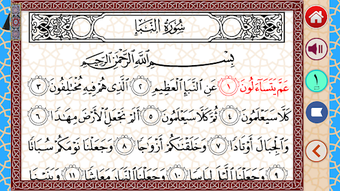 سُورَةُ النَّبَإِ
بِسْمِ اللَّهِ الرَّحْمَٰنِ الرَّحِيمِ
عَمَّ يَتَسَاءَلُونَ ١ عَنِ النَّبَإِ الْعَظِيمِ ٢ الَّذِي هُمْ فِيهِ مُخْتَلِفُونَ ٣
كَلَّا سَيَعْلَمُونَ ٤ ثُمَّ كَلَّا سَيَعْلَمُونَ ٥ أَلَمْ نَجْعَلِ الْأَرْضَ مِهَادًا ٦
وَالْجِبَالَ أَوْتَادًا ٧ وَخَلَقْنَاكُمْ أَزْوَاجًا ٨ وَجَعَلْنَا نَوْمَكُمْ سُبَاتًا
٩ وَجَعَلْنَا اللَّيْلَ لِبَاسًا ١٠ وَجَعَلْنَا النَّهَارَ مَعَاشًا ١١ وَبَنَيْنَا
١